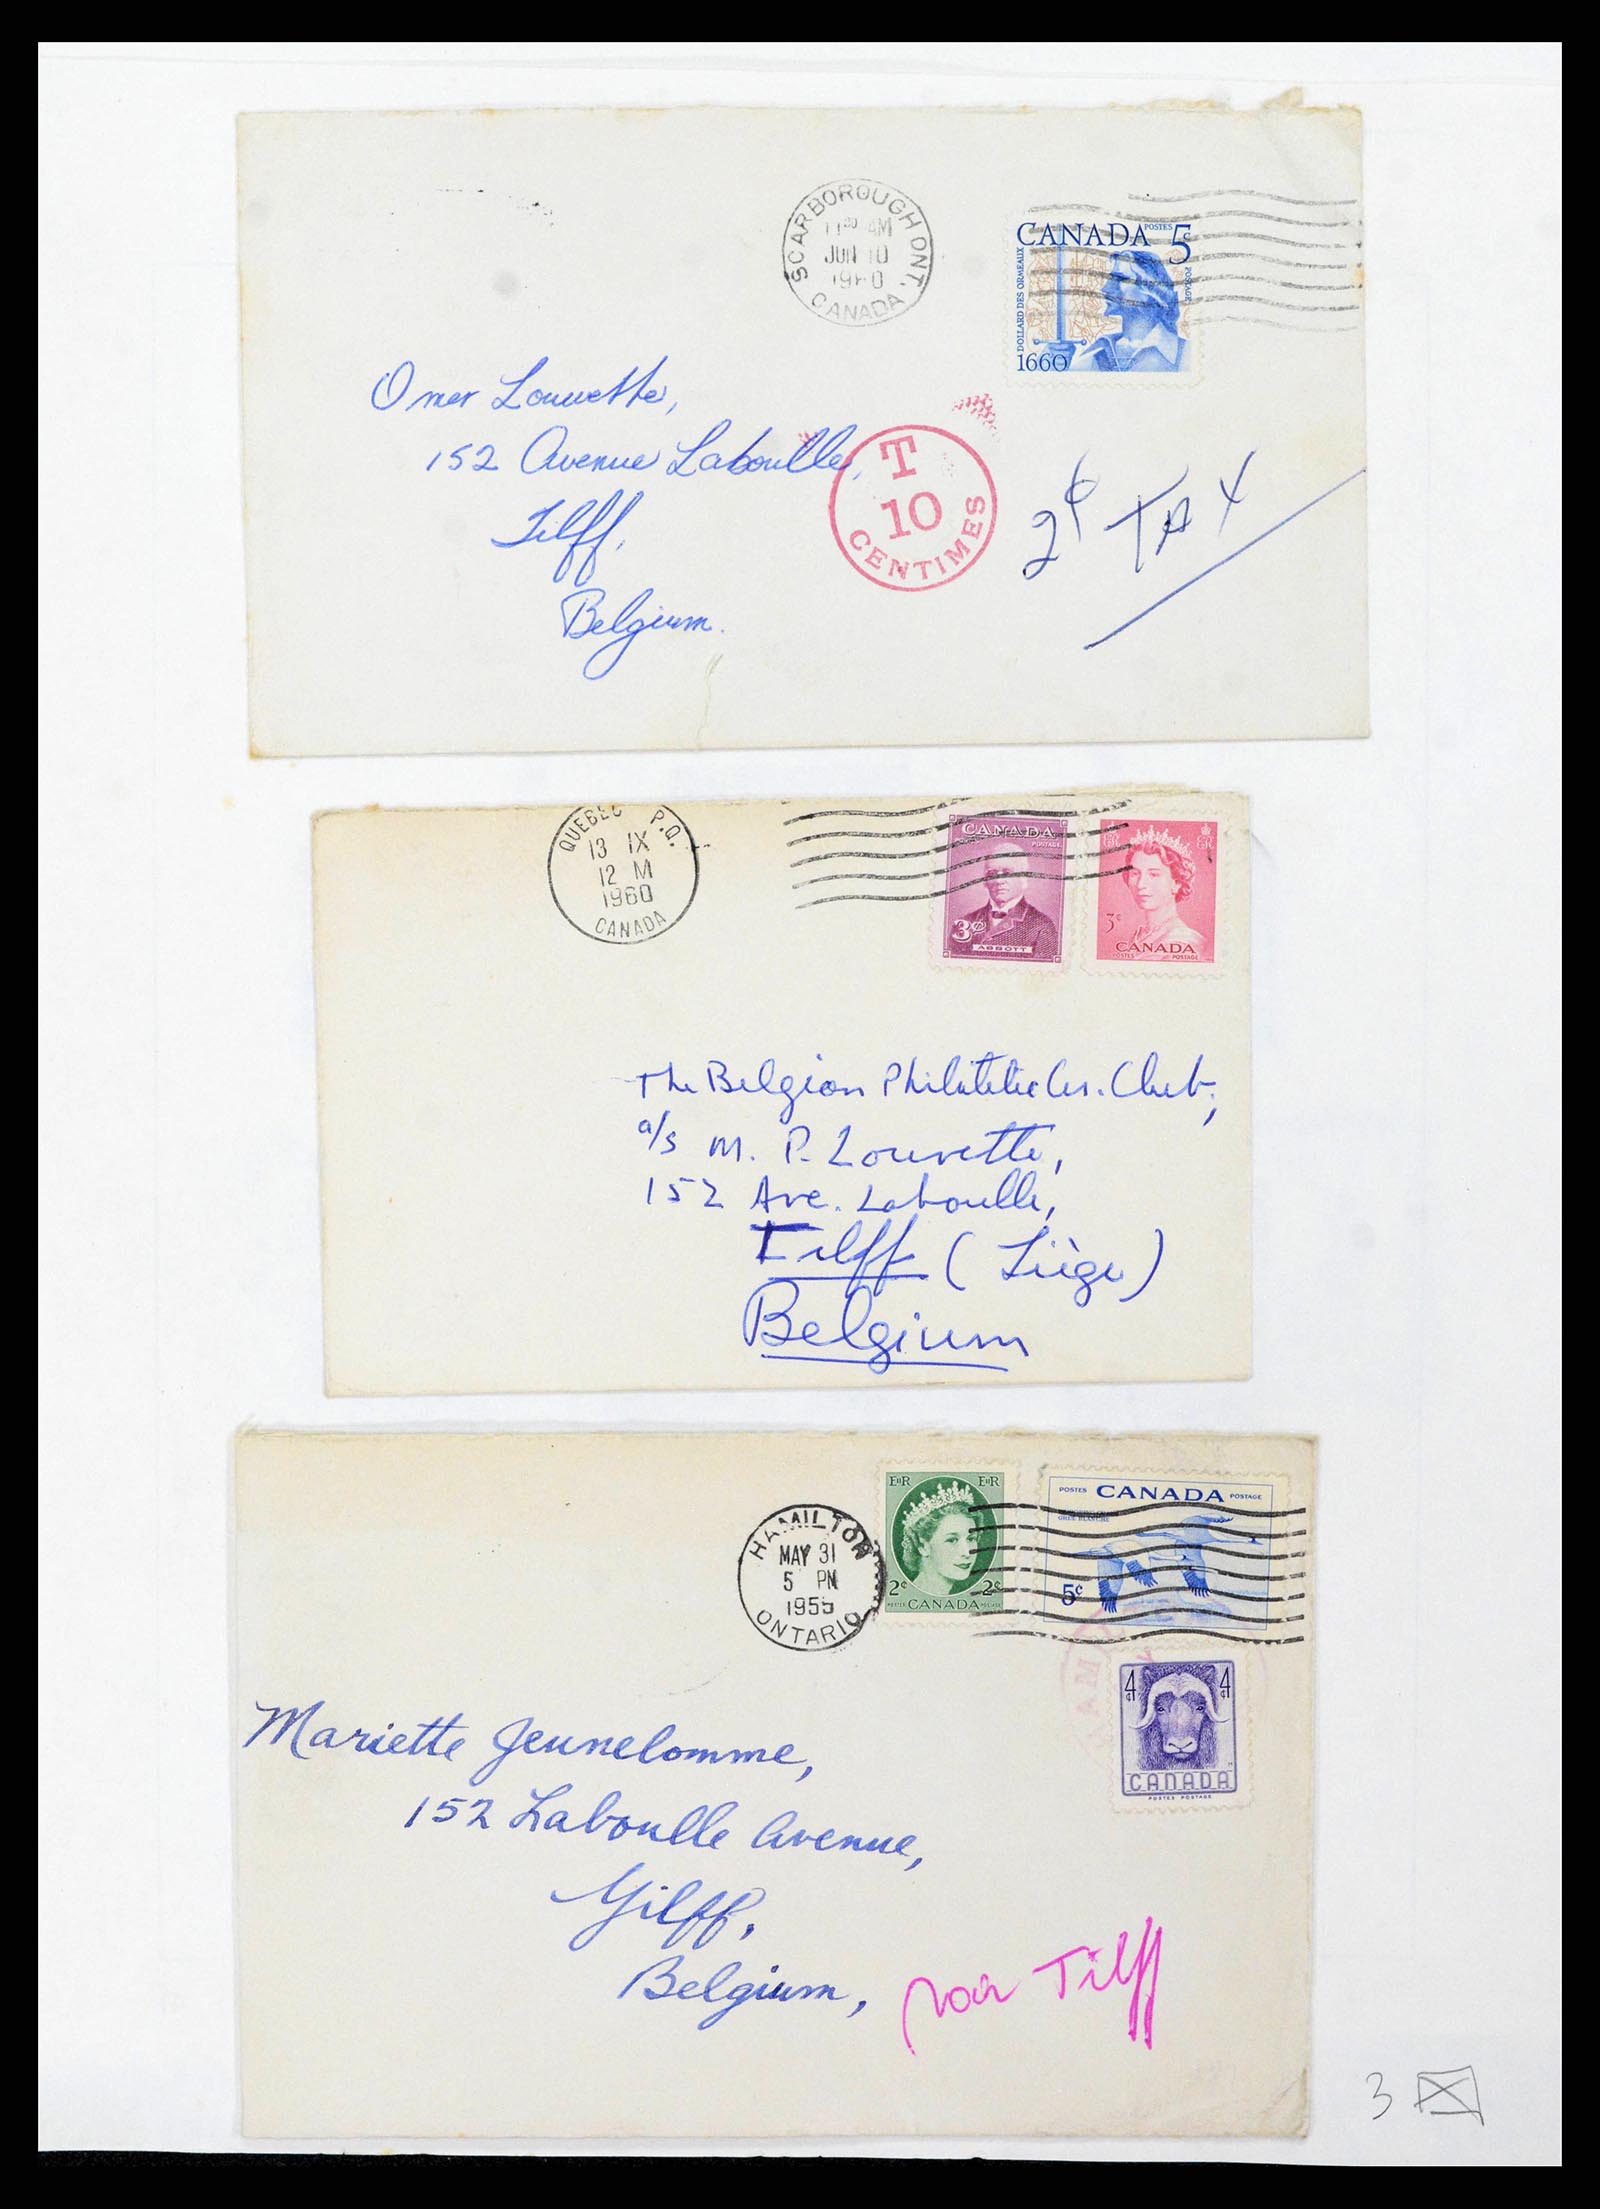 SCARBOROUGH ONT.
11 30 AM
JUN 10
1960
CANADA
CANADA POSTES 5c
POSTAGE
DOLLARD DES ORMEAUX
1660
Omer Louvette,
152 Avenue Laboulle,
Tilff,
Belgium.
T
10
CENTIMES
2¢ TAX
QUEBEC P.Q.
13 IX
12 M
1960
CANADA
CANADA
POSTAGE
3¢
ABBOTT
ER ER
3c
CANADA
POSTES POSTAGE
The Belgian Philatelic Club,
a/s M. P. Louvette,
152 Ave. Laboulle,
Tilff (Liège)
Belgium
HAMILTON
MAY 31
5 PM
1955
ONTARIO
EIIR EIIR
2c 2c
POSTES CANADA POSTAGE
POSTES CANADA POSTAGE
GRUE BLANCHE
5c
4¢ 4¢
CANADA
POSTES POSTAGE
Mariette Jeunelomme,
152 Laboulle Avenue,
Gilff,
Belgium,
voir Tilff
3